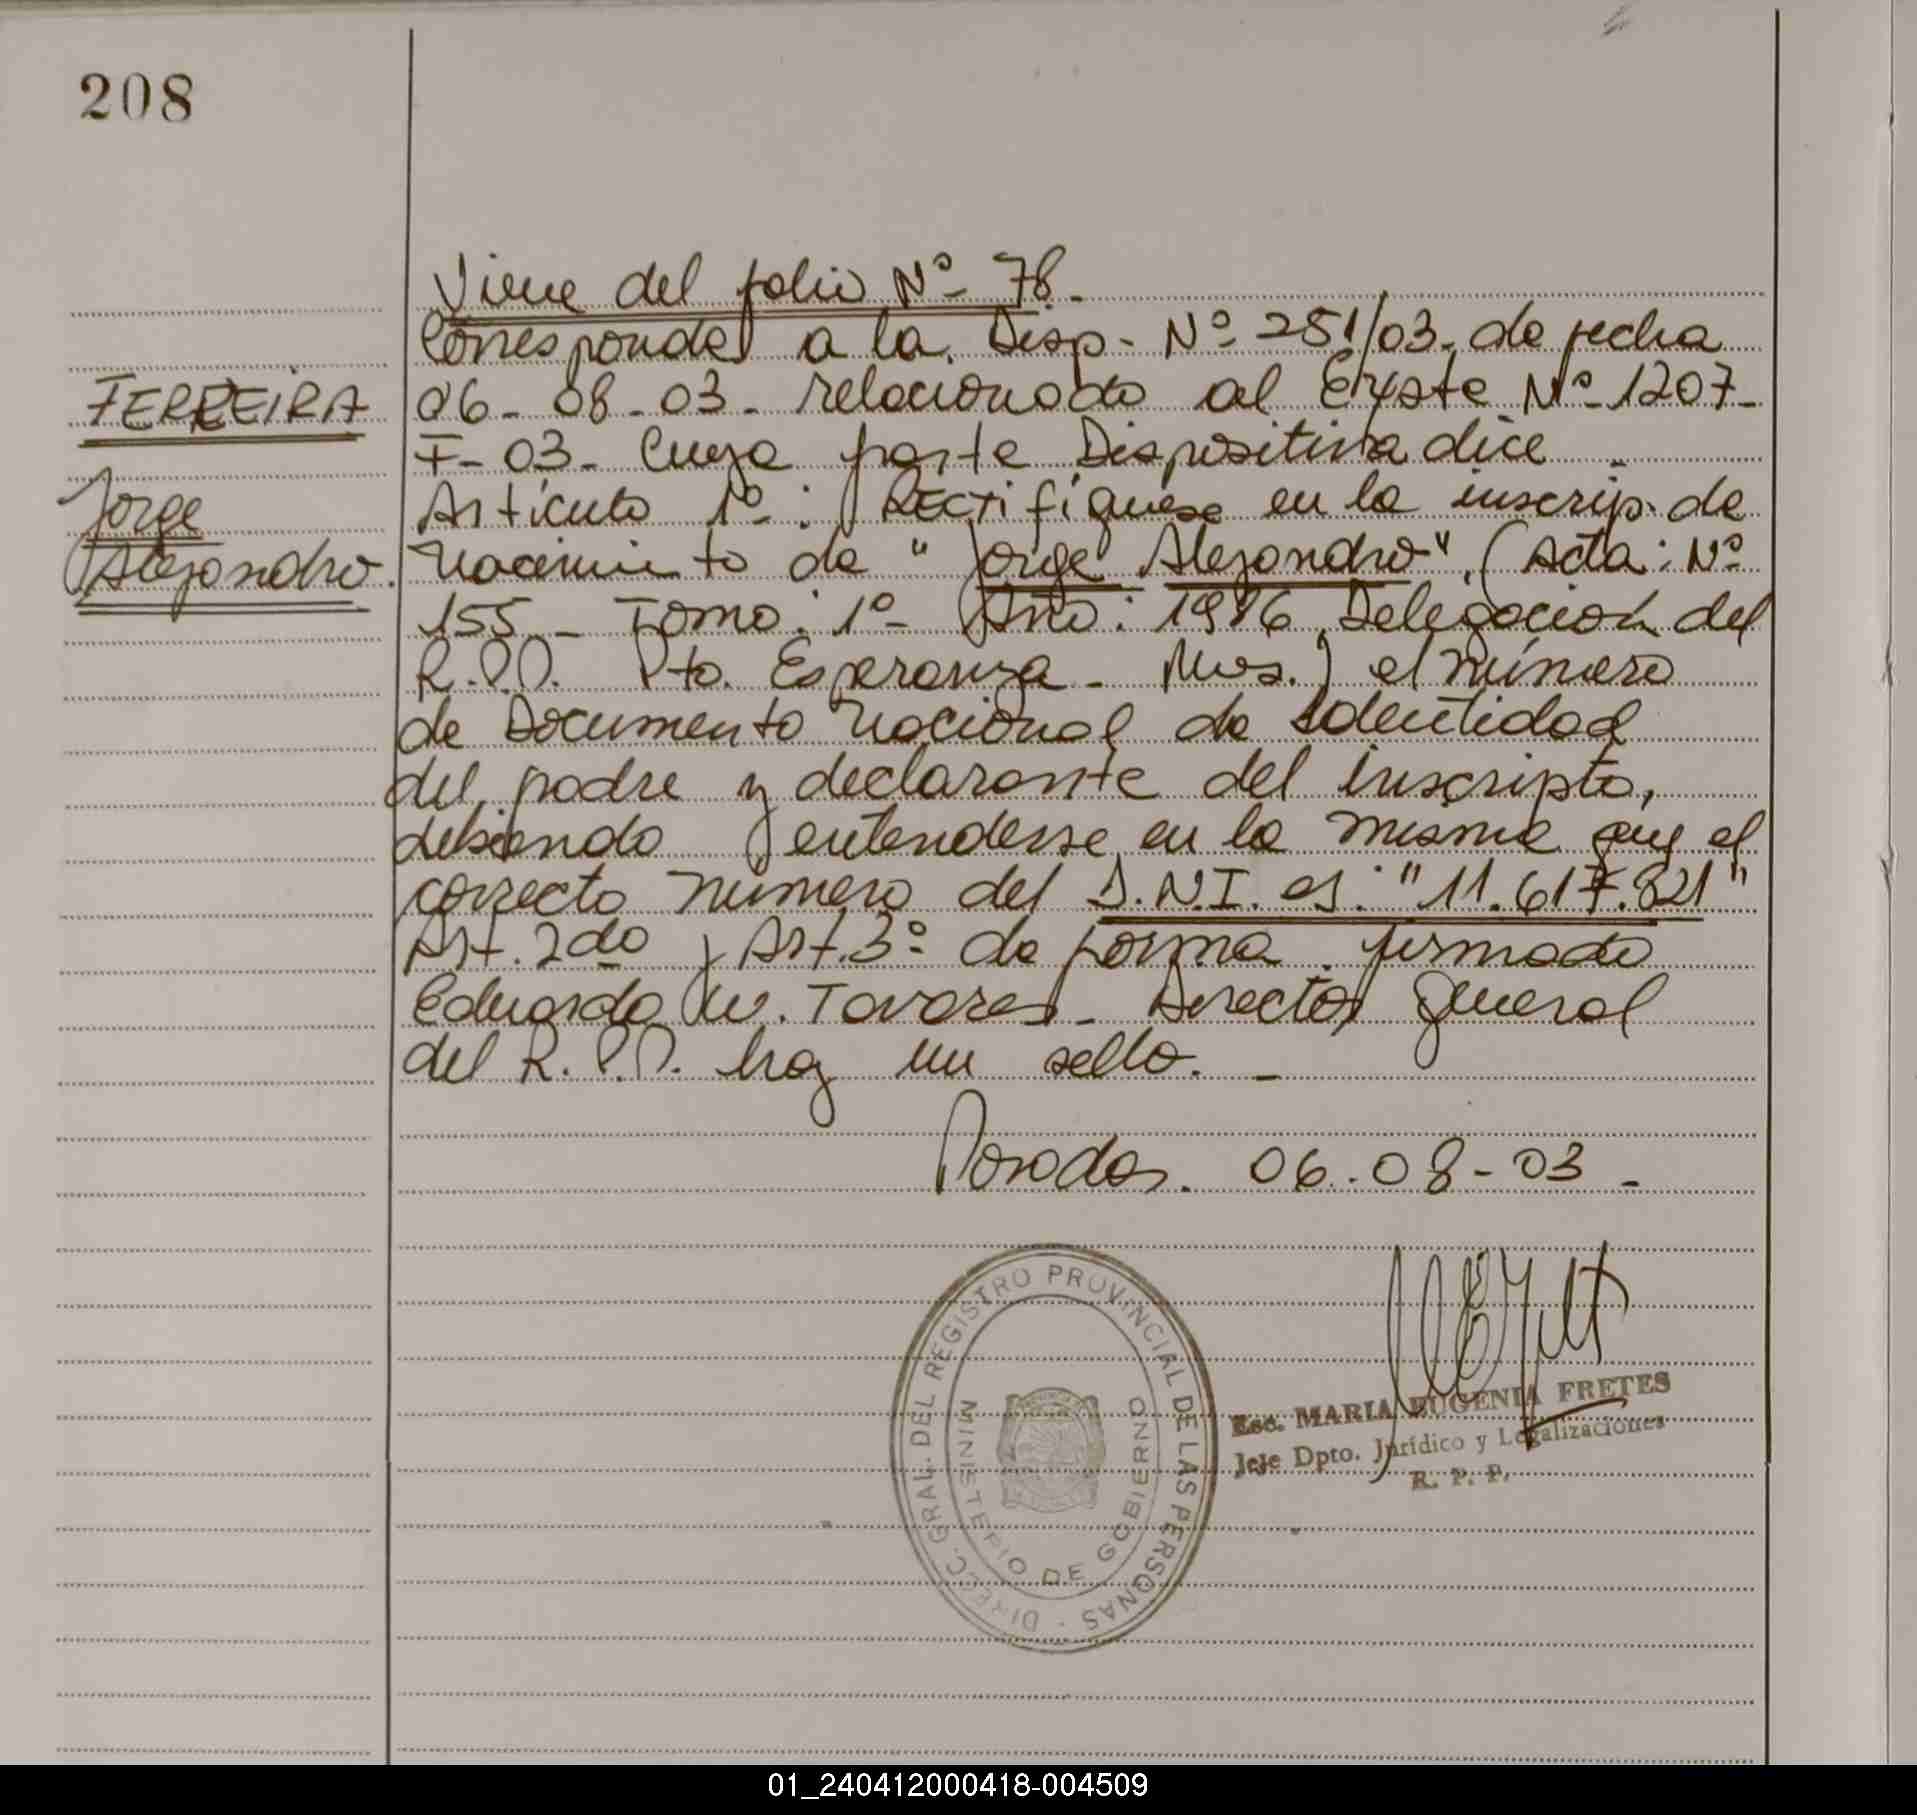 208
Viene del folio Nº 78.
Corresponde a la Disp. Nº 251/03, de fecha
FERREIRA
06-08-03- relacionado al Expte Nº 1207-
F-03- Cuya parte Dispositiva dice
Jorge
Alejandro.
Artículo 1º: Rectifíquese en la inscrip. de
nacimiento de "Jorge Alejandro". (Acta: Nº
155- Tomo: 1º- Año: 1986, Delegación del
R.P.P. Pto. Esperanza- Mnes.) el número
de Documento Nacional de Identidad
del padre y declarante del inscripto,
debiendo entenderse en la misma que el
correcto número del D.N.I. es: "11.617.821"
Art. 2do y Art. 3º de forma. firmado
Eduardo W. Tavares- Director General
del R.P.P. hay un sello.-
Posadas. 06.08-03-
DIRECC. GRAL. DEL REGISTRO PROVINCIAL DE LAS PERSONAS -
MINISTERIO DE GOBIERNO
Esc. MARIA EUGENIA FRETES
Jefe Dpto. Jurídico y Legalizaciones
R. P. P.
01_240412000418-004509